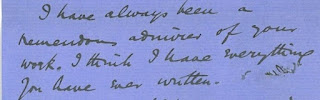 I have always been a
tremendous admirer of your
work. I think I have everything
you have ever written.